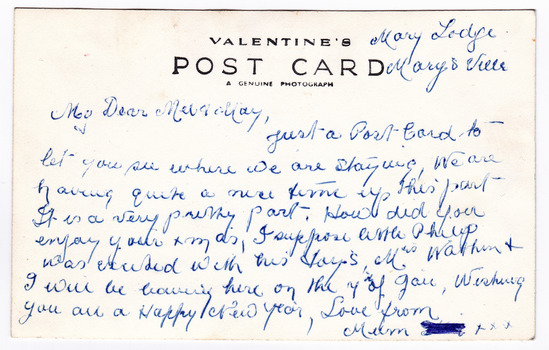 VALENTINE'S
POST CARD
A GENUINE PHOTOGRAPH
Mary Lodge.
Mary's Ville
My Dear May,
Just a Post Card to
let you see where we are staying, We are
having quite a nice time up this part
It is a very pretty part. How did you
enjoy your xmas, I suppose little Philip
was excited with his toys, Mrs &
I will be leaving here on the of Jan, Wishing
you all a Happy New Year, Love from
Mum xxx